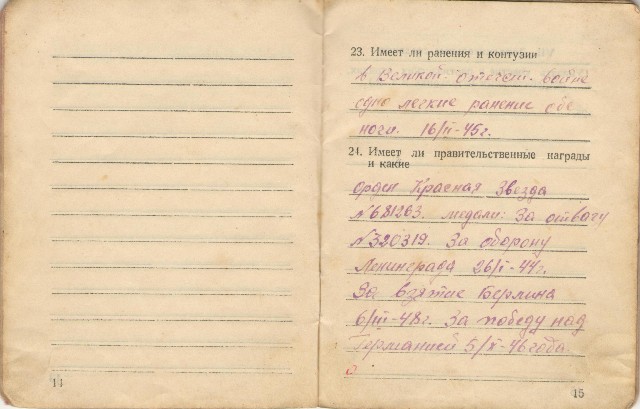 23. Имеет ли ранения и контузии
в Великой отечет. войне
одно легкие ранение обе
ноги. 16/II-45г.
24. Имеет ли правительственные награды
и какие
орден Красная Звезда
№681263. медали: За отвагу
№320319. За оборону
Ленинграда 26/I-44г.
За взятие Берлина
6/III-48г. За победу над
Германией 5/X-46 года
14
15